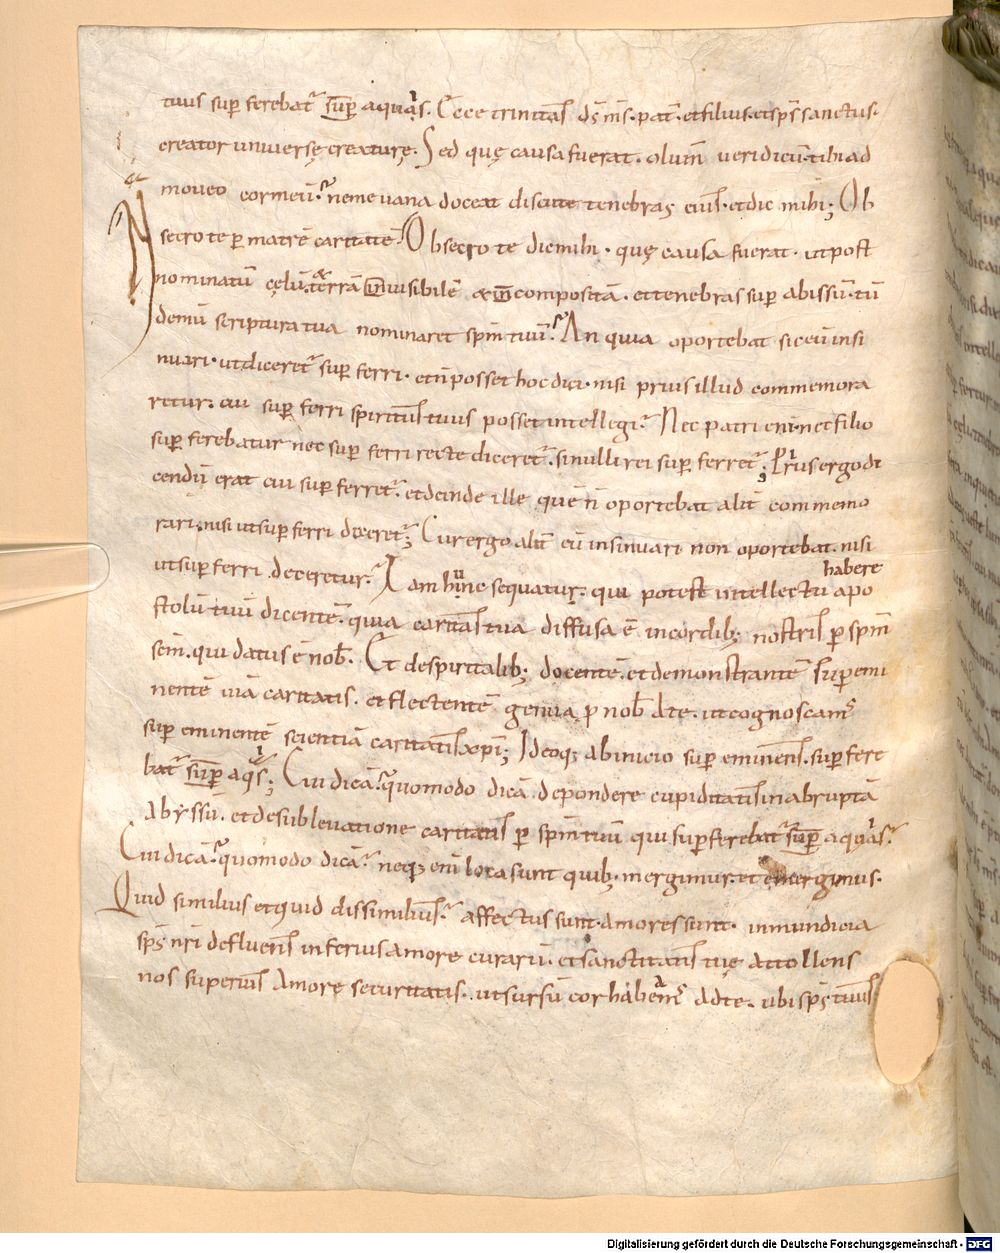 tuus sup ferebat᷑ sup aquas. Ecce trinitas ds̄ ms̄. pat̄. et filius. et sps̄ sanctus.
creator universę creaturę. Sed quę causa fuerat. o lum̄ veridicū. tibi ad
moveo cor meū. ne me vana doceat discute tenebras eius. et dic mihi; Ob
secro te p matrē caritatē. Obsecro te dic mihi. quę causa fuerat. ut post
nominatū cęlū. & terrā invisibilē & incompositā. et tenebras sup abissū. tū
demū scriptura tua nominaret spm̄ tuū. An quia oportebat sic eū insi
nuari. ut diceret᷑ sup ferri. et n̄ posset hoc dici. nisi prius illud commemora
retur. cui sup ferri spiritus tuus posset intellegi. Nec patri eni. nec filio
sup ferebatur nec sup ferri recte diceret᷑. si nulli rei sup ferret᷑; Prius ergo di
cendū erat cui sup ferret᷑. et deinde ille quē n̄ oportebat alit̄ commemo
rari. nisi ut sup ferri diceret᷑; Cur ergo alit̄ eū insinuari non oportebat. nisi
ut sup ferri diceretur. Iam hunc sequatur. qui potest intellectu apo
habere
stolū tuū dicentē. quia caritas tua diffusa ē in cordib; nostris p spm̄
scm̄. qui datus ē nob̄. Et de spiritalib; docentē. et demonstrantē supemi
nentē viā caritatis. et flectentē genua p nob̄ ad te. ut cognoscam᷒
sup eminentē scientiā caritatis xpi; Ideoq; ab inicio sup eminens. sup fere
bat᷑ sup aqs; Cui dicā. quomodo dicā de pondere cupiditatis in abruptā
abyssū. et de sublevatione caritatis p spm̄ tuū qui supferebat᷑ sup aquas.
Cui dicā. quomodo dicā. neq; eni loca sunt quib; mergimur. et emergimus.
Quid similius et quid dissimilius. affectus sunt. amores sunt. inmundicia
sps̄ nr̄i defluens inferius amore curarū. et sanctitas tuę attollens
nos superius amore securitatis. ut sursū cor habeam᷒ ad te. ubi sps̄ tuus
Digitalisierung gefördert durch die Deutsche Forschungsgemeinschaft - DFG